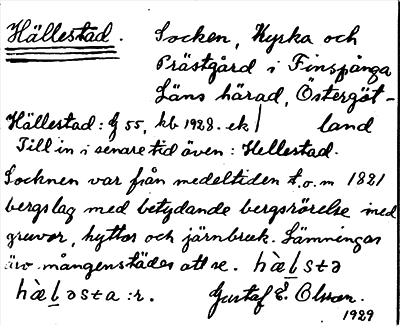 Hällestad. Socken, Kyrka och
Prästgård i Finspånga
Läns härad, Östergöt-
land
Hällestad: G 55, kb 1928. ek
Till in i senare tid även: Hellestad.
Socknen var från medeltiden t.o.m 1821
bergslag med betydande bergsrörelse med
gruvor, hyttor och järnbruk. Lämningar
äro mångenstädes att se. hàlstə
hàləsta:r. Gustaf E. Olsson.
1929